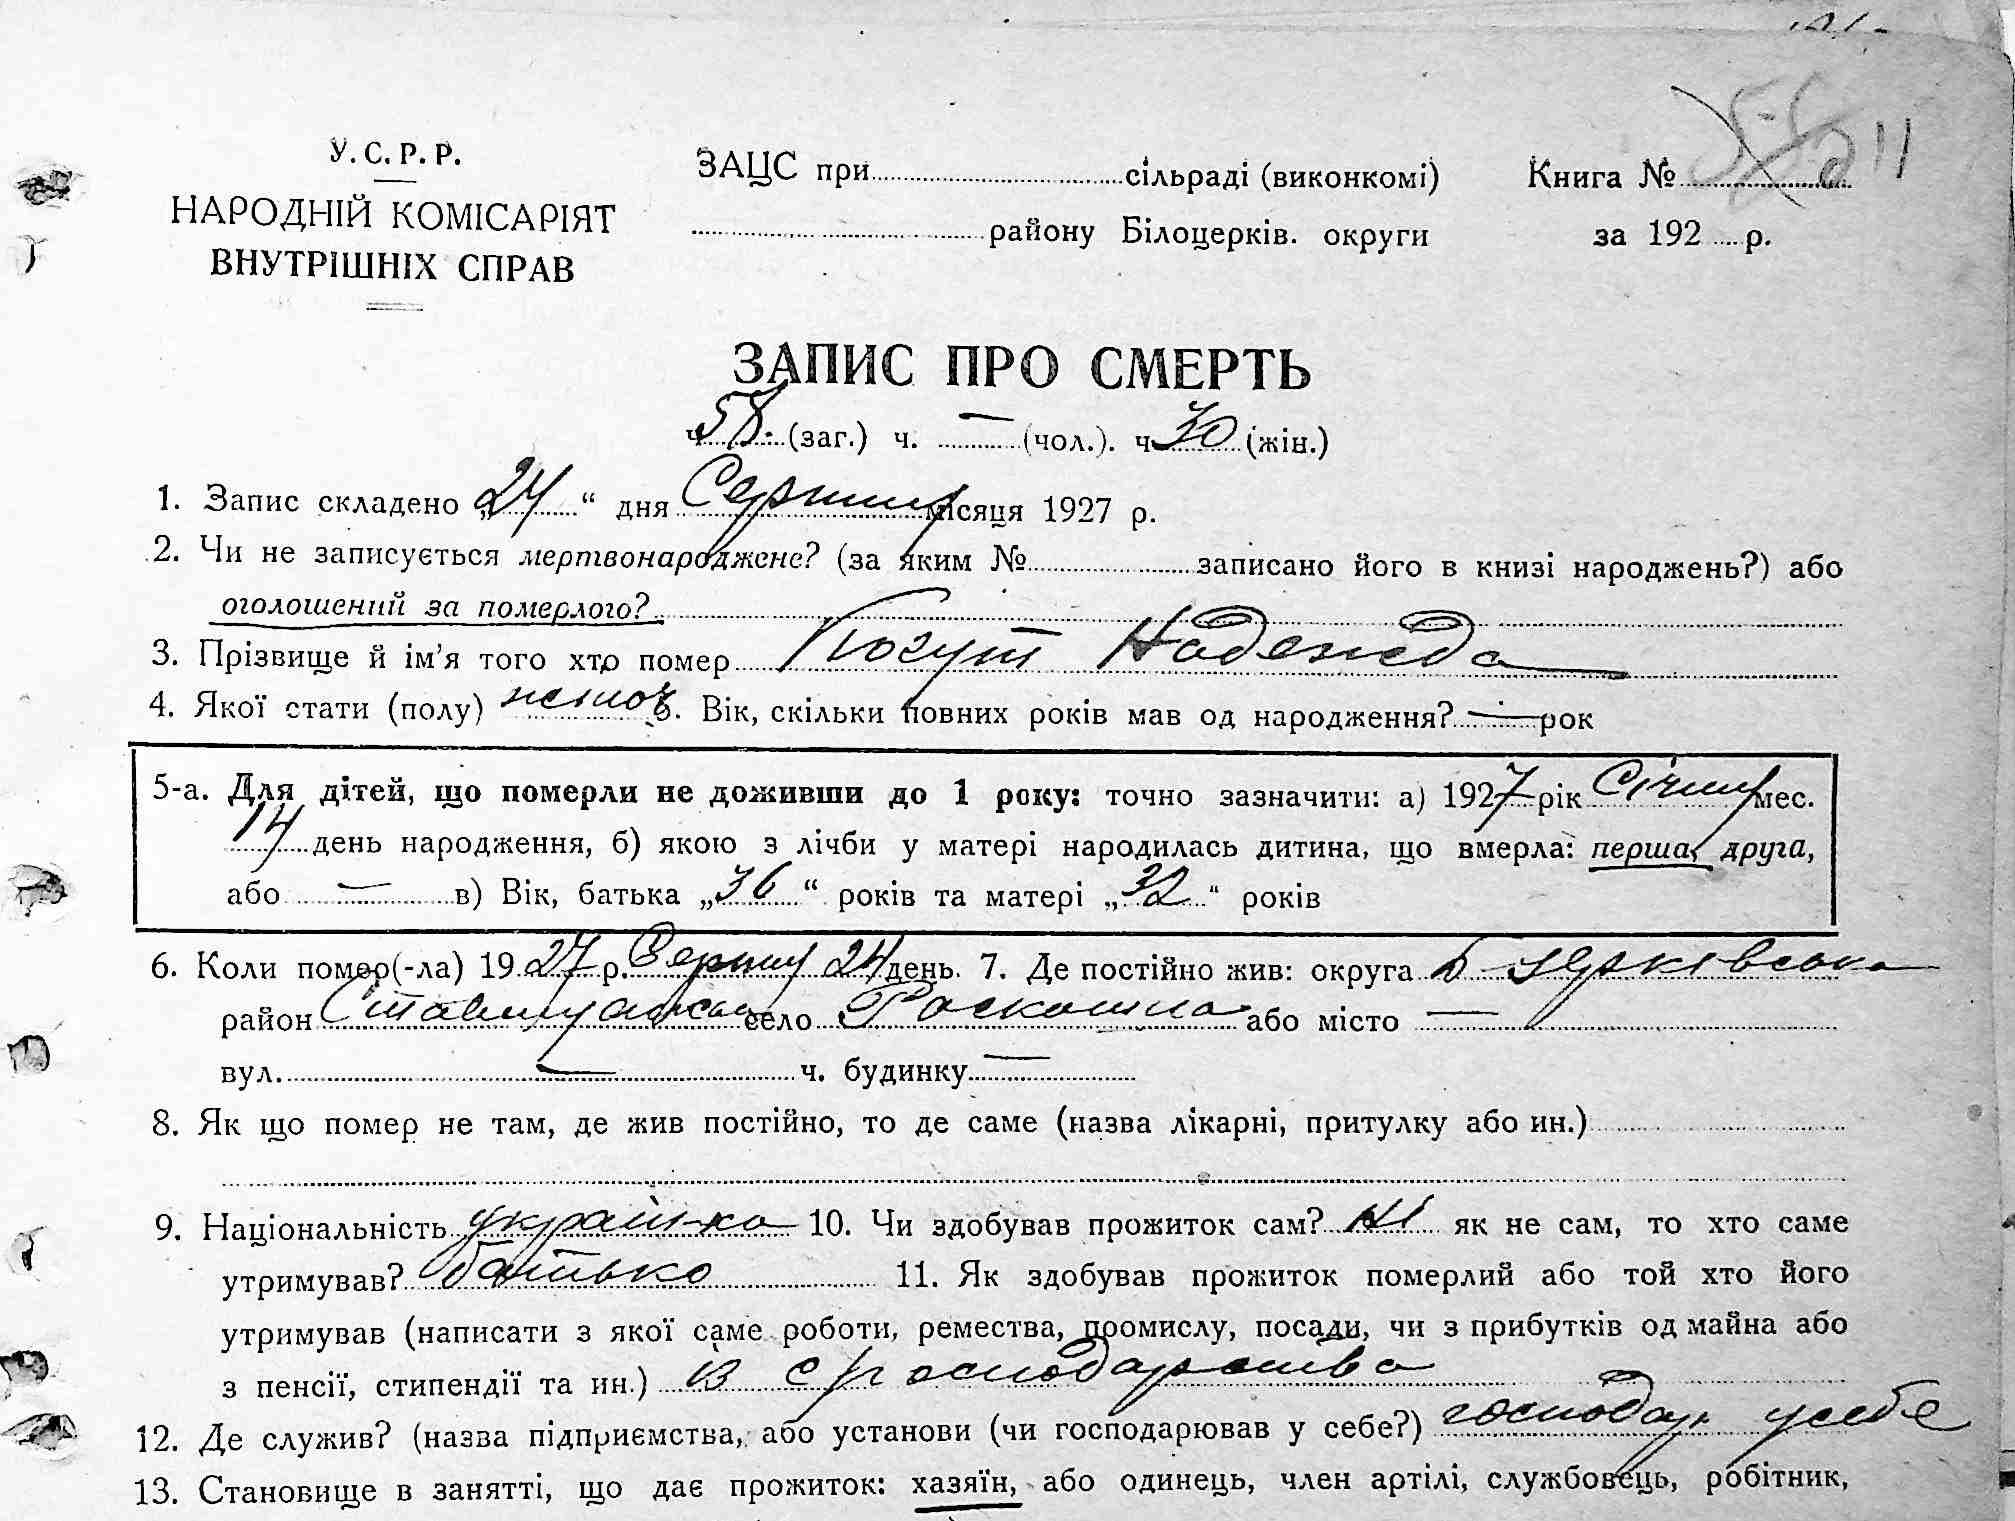 У. С. Р. Р.
НАРОДНІЙ КОМІСАРІЯТ
ВНУТРІШНІХ СПРАВ
ЗАЦС при сільраді (виконкомі)
району Білоцерків. округи
Книга №
11
за 192 р.
ЗАПИС ПРО СМЕРТЬ
ч. 58. (заг.) ч. — (чол.). ч 30 (жін.)
1. Запис складено „24“ дня Серпня місяця 1927 р.
2. Чи не записується мертвонароджене? (за яким № записано його в книзі народжень?) або
оголошений за померлого?
3. Прізвище й ім’я того хто помер Когут Надежда
4. Якої стати (полу) жіноч 5. Вік, скільки повних років мав од народження? — рок
5-а. Для дітей, що померли не доживши до 1 року: точно зазначити: а) 1927 рік Січня мес.
14 день народження, б) якою з лічби у матері народилась дитина, що вмерла: перша, друга,
або — в) Вік, батька „36“ років та матері „32“ років
6. Коли помер(-ла) 1927 р. Серпня 24 день. 7. Де постійно жив: округа Б-Церківська
район село Роскошна або місто —
вул. — ч. будинку —
8. Як що помер не там, де жив постійно, то де саме (назва лікарні, притулку або ин.)
9. Національність україн-ка 10. Чи здобував прожиток сам? ні як не сам, то хто саме
утримував? батько 11. Як здобував прожиток померлий або той хто його
утримував (написати з якої саме роботи, ремества, промислу, посади, чи з прибутків од майна або
з пенсії, стипендії та ин.) із с/господарства
12. Де служив? (назва підприємства, або установи (чи господарював у себе?) господар у себе
13. Становище в занятті, що дає прожиток: хазяїн, або одинець, член артілі, службовець, робітник,